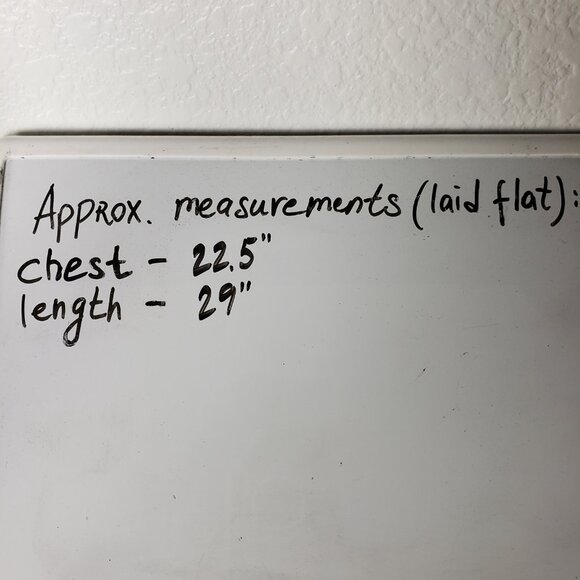 Approx. measurements (laid flat):
chest - 22.5"
length - 29"